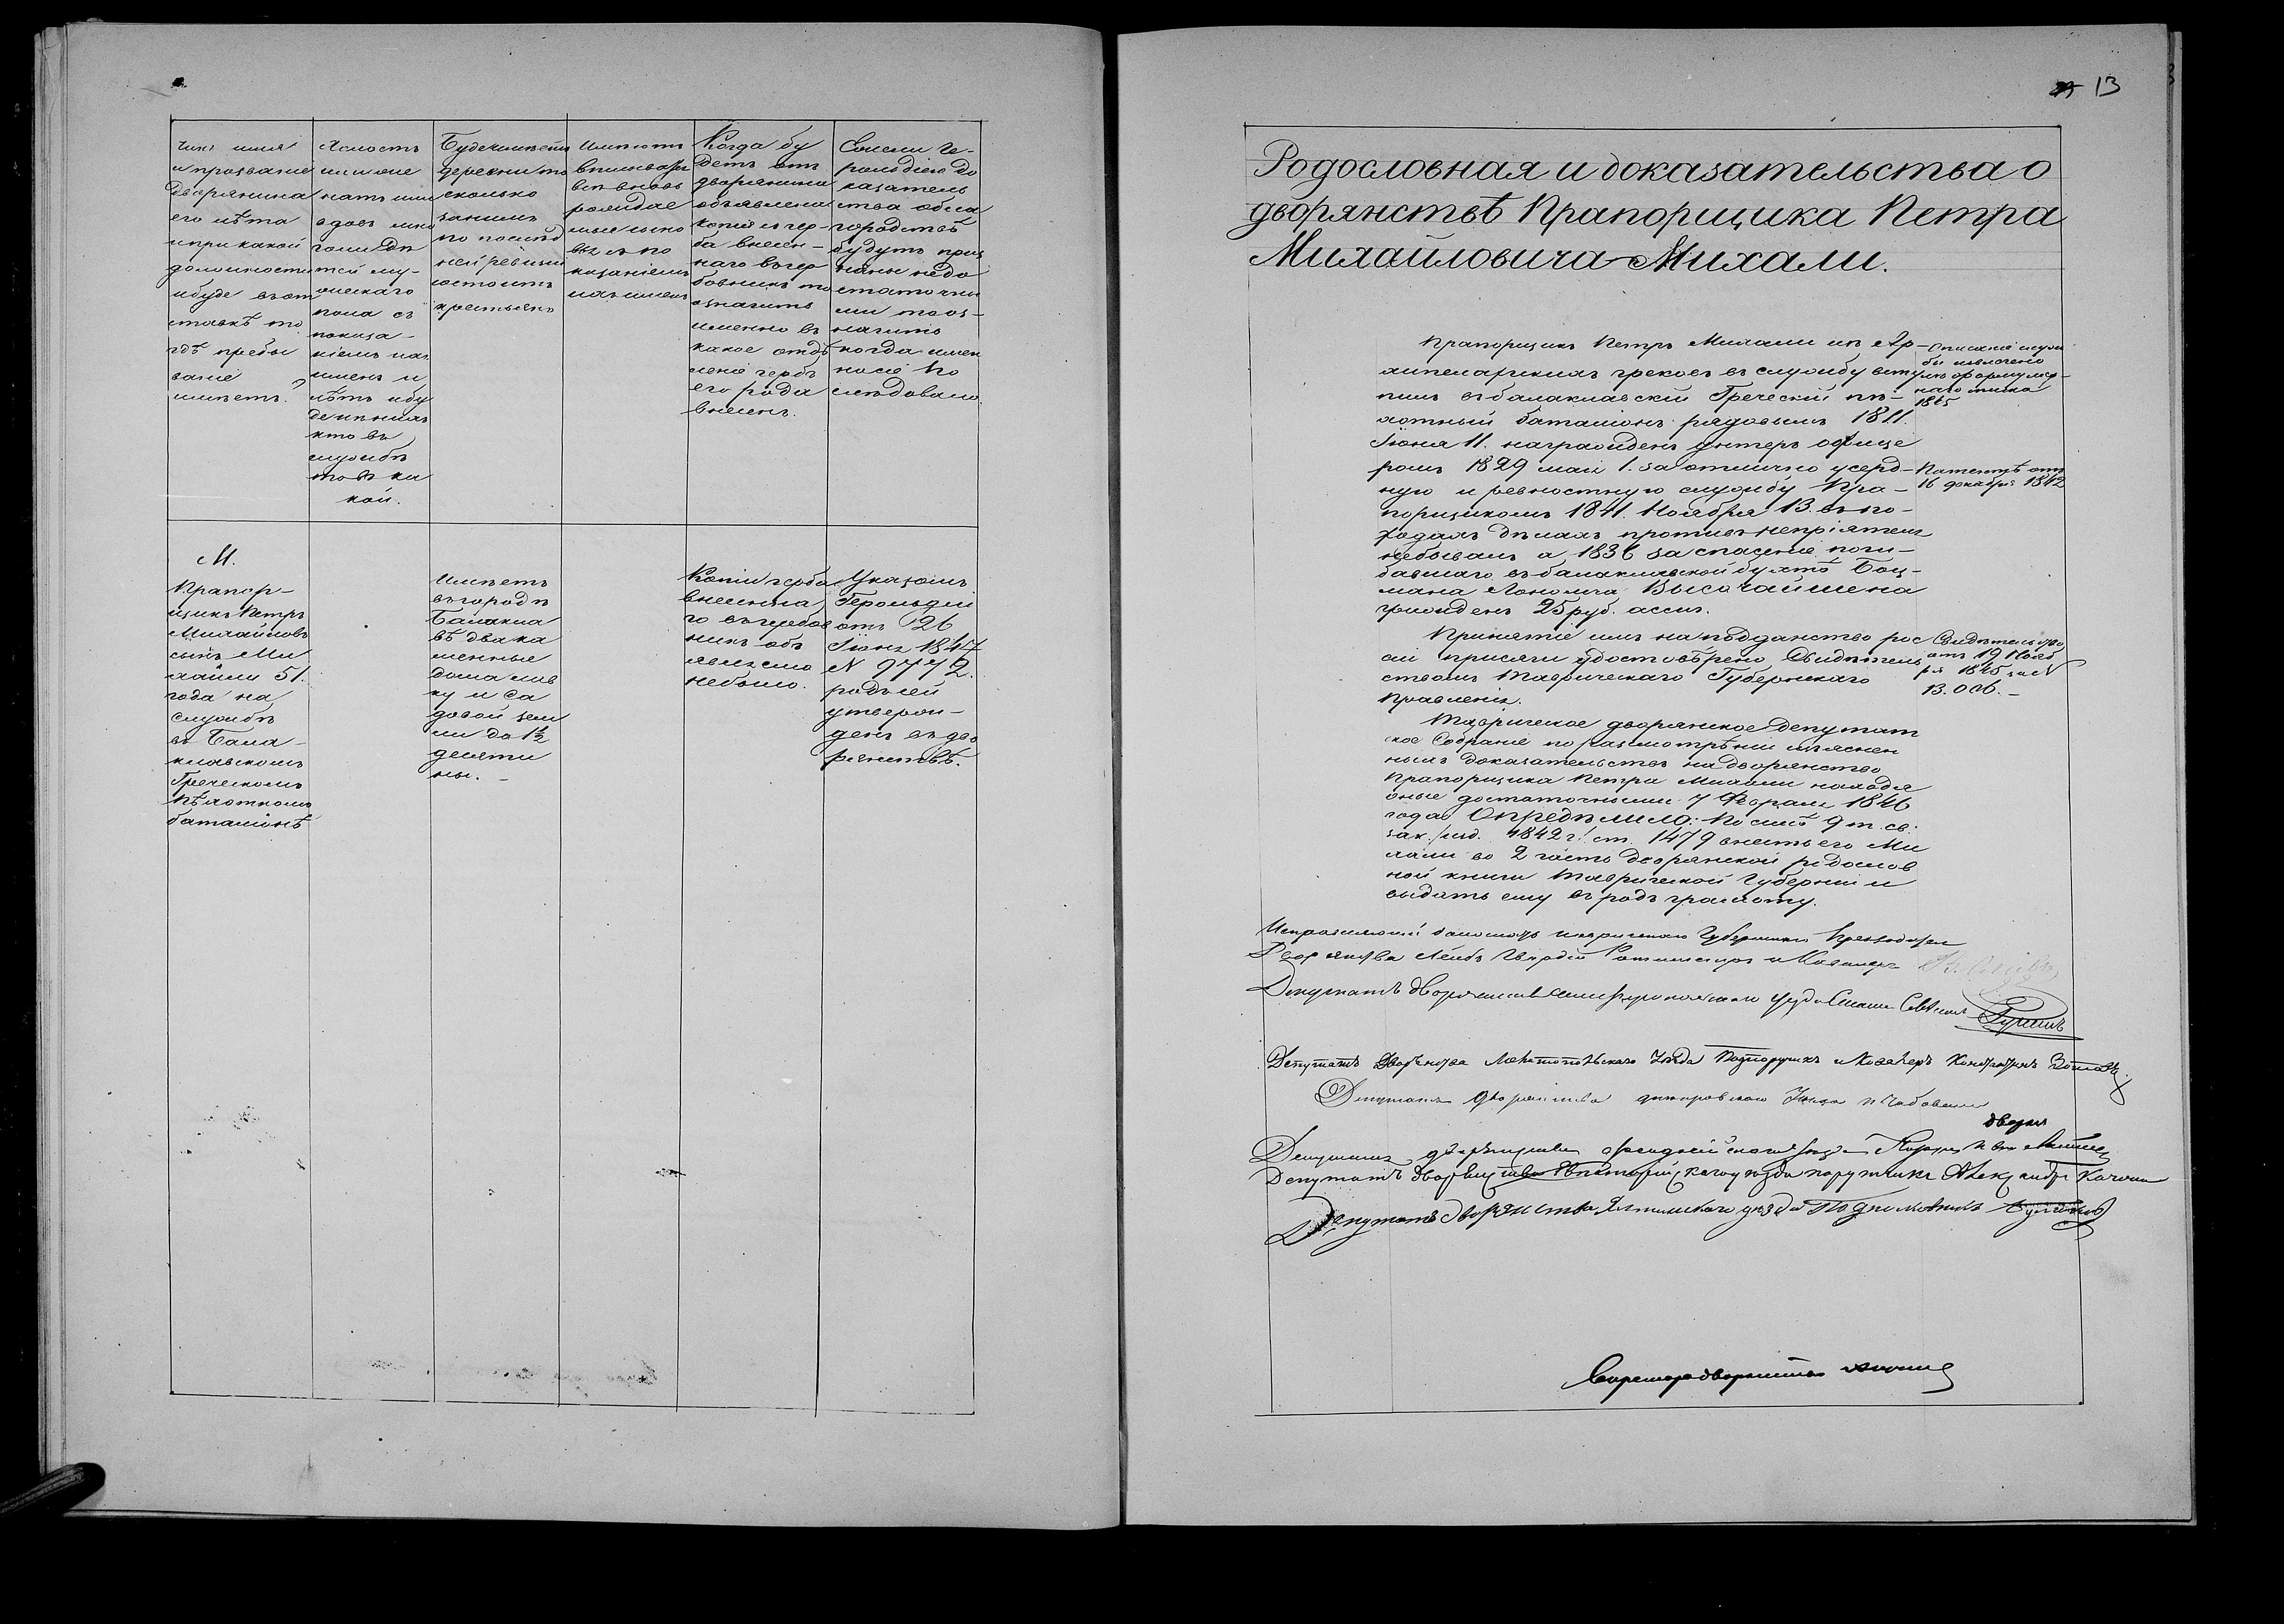 Чинъ имя
и прозваніе
Дворянина
его лѣта
и при какой
должности
и буде въ от
ставкѣ то
гдѣ пребы
ваніе
имѣетъ.
Холостъ
или же
натъ или
вдовъ
тей му-
жескаго
пола съ
показа-
ніемъ ихъ
именъ и
лѣтъ и бу
де изъ нихъ
кто въ
службѣ
то въ ка
кой.
Буде имѣетъ
деревни то
сколько
за нимъ
по послѣд
ней ревизіи
состоитъ
крестьянъ
Имѣютъ
вписыватся
всѣ вновь
рождае
мые сыно
вья съ по
казаніемъ
ихъ именъ
Когда бу
детъ отъ
дворянина
объявлена
копія съ гер-
ба внесен-
наго въ гер
бовникъ то
означить
именно въ
какое отдѣ
леніе гербъ
его рода
внесенъ.
Если Ге-
рольдіею до
казатель
ства об его
родствѣ
будутъ приз
наны недо
статочны
ми то оз-
начить
когда имен
но сіе по
слѣдовало.
М.
Прапор-
щикъ Петръ
Михайловъ
сынъ Ми
хайли 51.
года на
службѣ
въ Бала-
клавскомъ
Греческомъ
Пѣхотномъ
баталіонѣ
Имѣетъ
въ городѣ
Балакла
вѣ два ка
менные
дома лав
ку и са
довой зем
ли до 1½
десяти
ны.–
Копіи герба
внесенна
го въ гербов
никъ объ
явлено
небыло.
Указомъ
Герольдіи
отъ 26
Іюня 1847
N 9772.
родъ сей
утверж-
денъ въ дво
рянствѣ.
13
Родословная и доказательства о
дворянствѣ Прапорщика Петра
Михайловича Михали.
Прапорщикъ Петръ Михали изъ Ар-
хипелагскихъ грековъ въ службу всту
пилъ въ балаклавскій Греческій пѣ-
хотный баталіонъ рядовымъ 1811.
Іюня 11. награжденъ унтеръ офице
ромъ 1829 маія 1. за отлично усерд-
ную и ревностную службу Пра-
порщикомъ 1841. Ноября 13. въ по-
ходахъ дѣлахъ противъ непріятеля
небывалъ а 1836 за спасеніе поги-
бавшаго въ балаклавской бухтѣ Боц-
мана Высочайше на
гражденъ 25 руб. ассиг.
Описаніе служ
бы извлечено
изъ формуляр-
наго списка
1845
Патентъ отъ
16 декабря 1842
Принятіе имъ на подданство рос
сіи присяги удостовѣрено Свидѣтель
ствомъ Таврическаго Губернскаго
Правленія.
Свидѣтельство
отъ 19 Нояб
ря 1845 за N
13.006.–
Таврическое дворянское Депутат
ское Собраніе по разсмотрѣніи изъяснен
ныхъ доказательствъ на дворянство
Прапорщика Петра Михали находя
оные достаточными 7 Февраля 1846
года Опредѣлило: По силѣ 9 т. св.
зак. /изд. 1842 г./ ст. 1479 внесть его Ми
хали во 2 часть Дворянской родослов
ной книги Таврической Губерніи и
выдать ему въ родъ грамоту.
Исправляющій должность Таврическаго Губернскаго Предводителя
Дворянства Лейбъ Гвардіи Ротмистръ и Кавалеръ
Депутатъ дворянства Симферопольскаго уѣзда Статскій Совѣтникъ
Депутатъ Дворянства Мелитопольскаго Уѣзда Подпоручикъ и Кавалеръ Константинъ
Депутатъ дворянства днепровскаго Уѣзда
дворян
Депутатъ дворянства Феодосійскаго уѣзда
Депутатъ дворянства Евпаторійскаго уѣзда поручикъ Александръ
Депутатъ дворянства Ялтинскаго уѣзда Подполковникъ
Секретарь дворянства